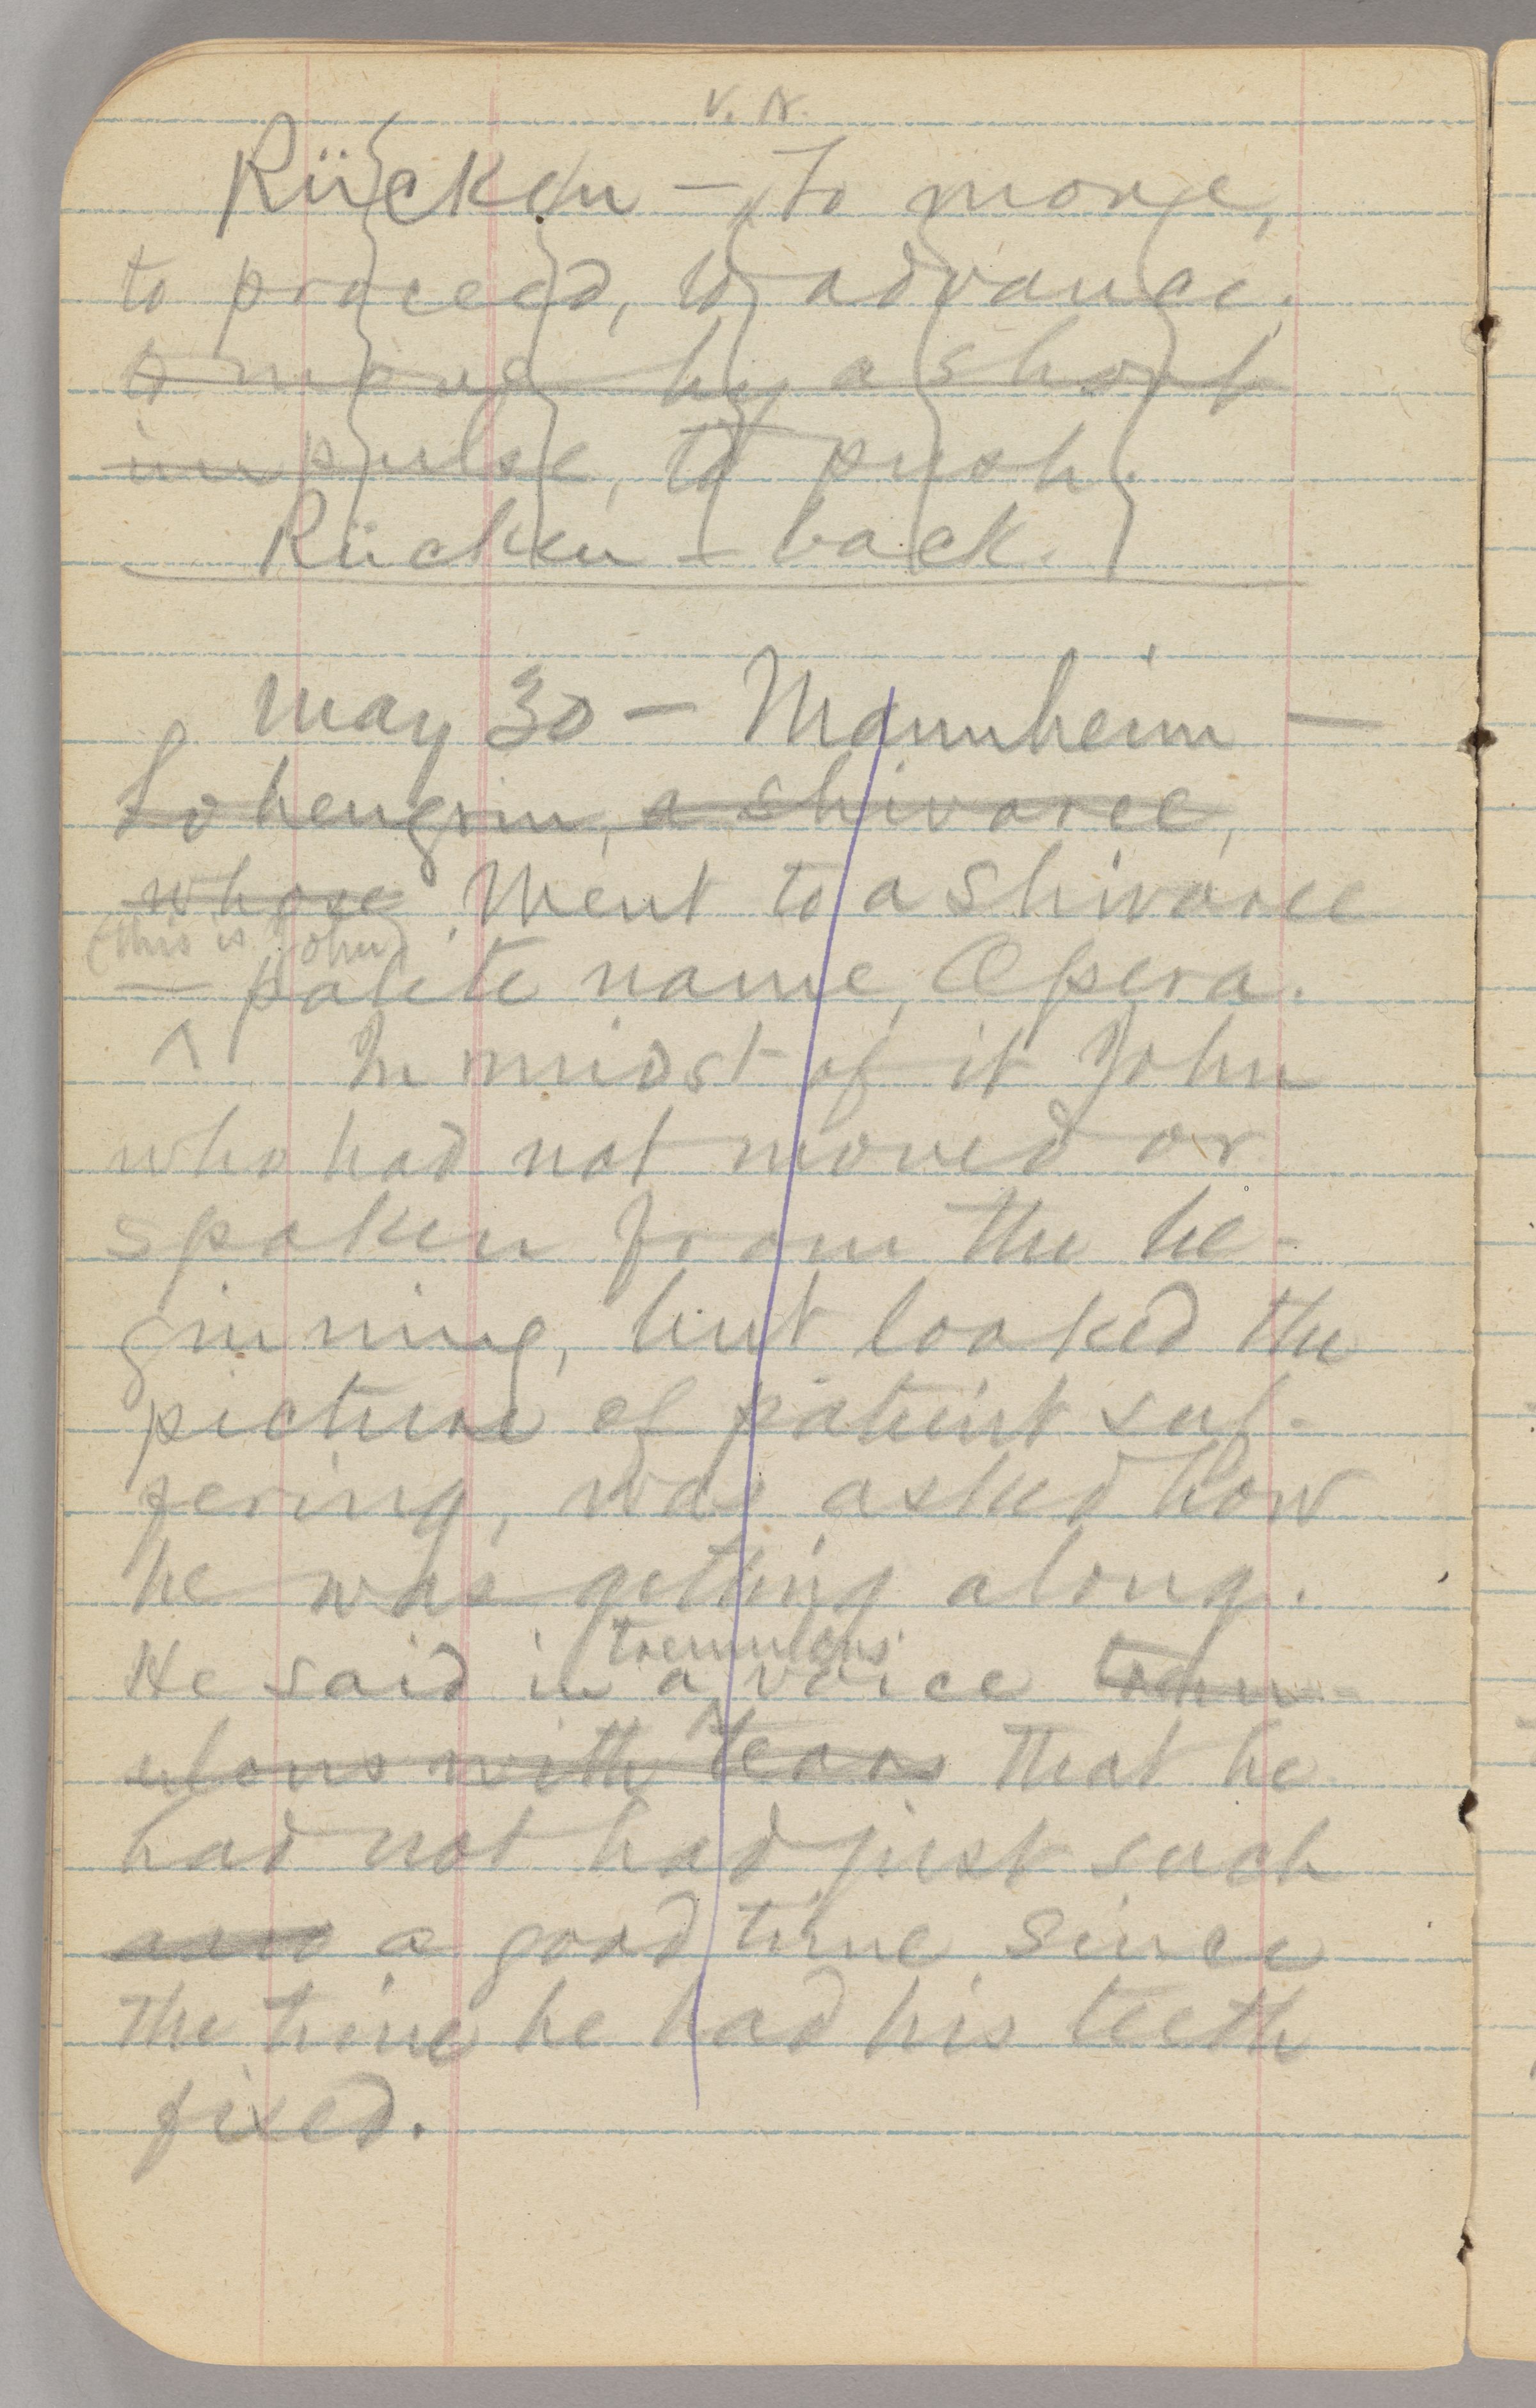 v. n.
Rücken — to move,
to proceed, to advance,
to move by a short
impulse, to push.
Rücken — back.
May 30 — Mannheim —
Lohengrin, a shivaree,
whose Went to a shivaree
(this is John)
— polite name, Opera.
^ In midst of it John
who had not moved or
spoken from the be-
ginning, but looked the
picture of patient suf-
fering, was asked how
he was getting along.
tremulous
He said in a ^ voice trem-
ulous with tears that he
had not had just such
a good time since
the time he had his teeth
fixed.